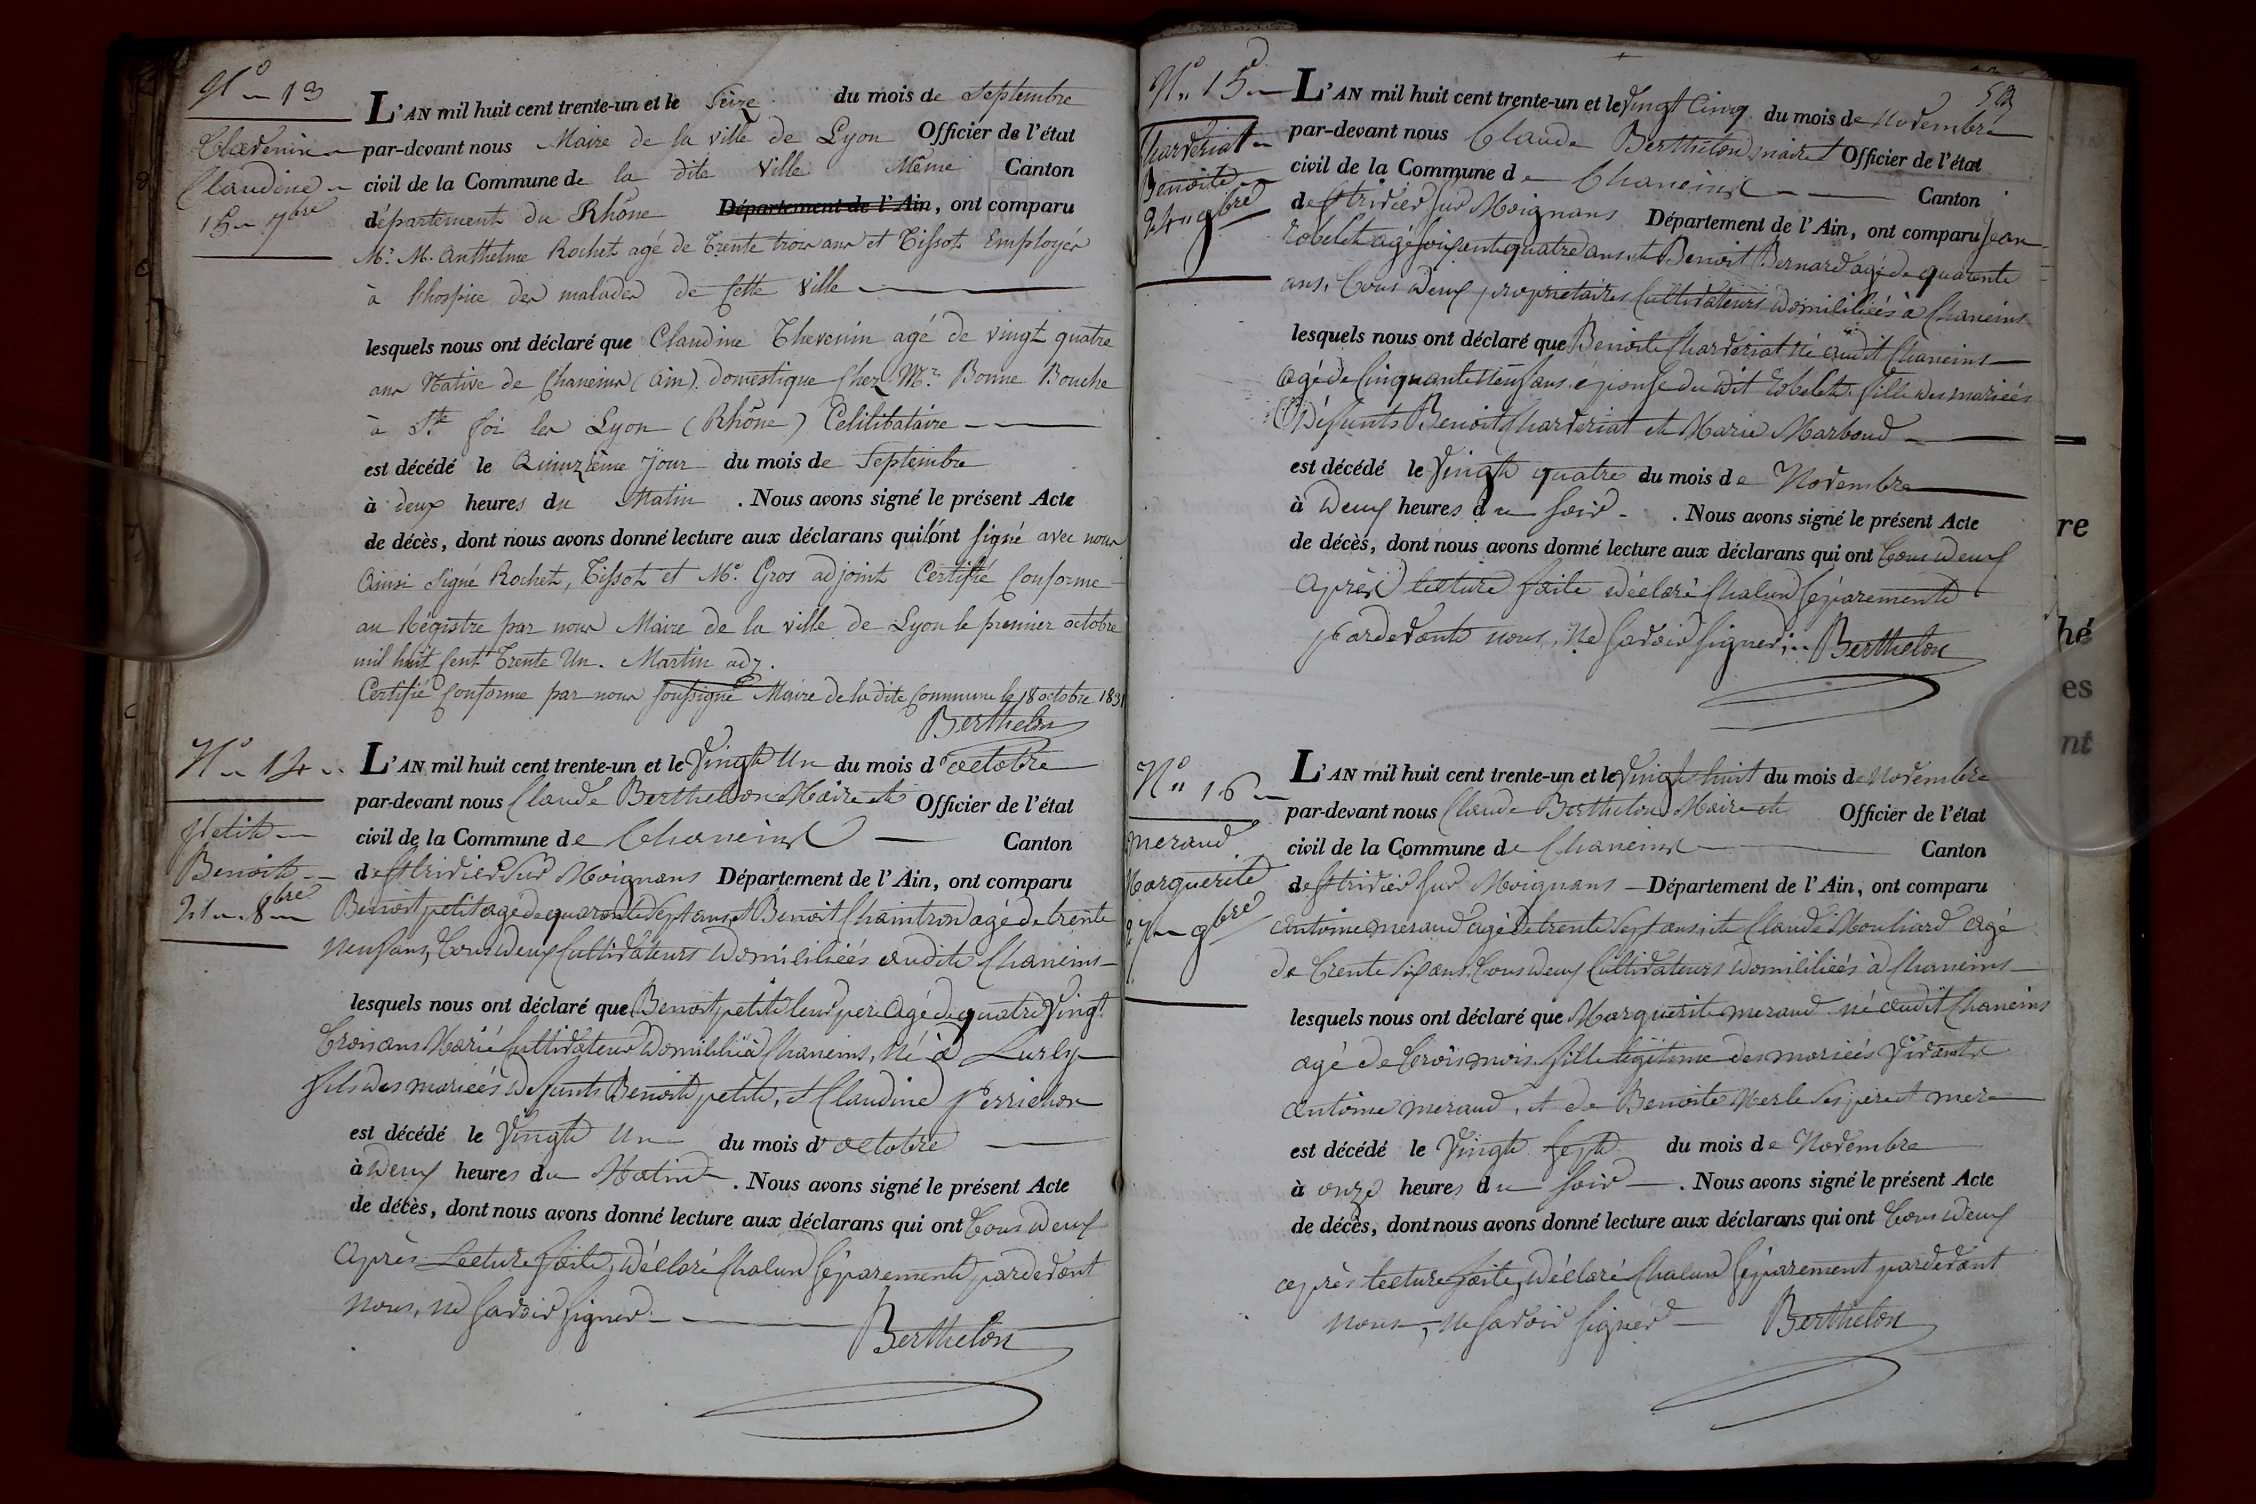 N° 13
Thevenin
Claudine
15 7bre
L'AN mil huit cent trente-un et le Seize du mois de Septembre
par-devant nous Maire de la ville de Lyon Officier de l'état
civil de la Commune de la dite Ville Même Canton
département du Rhône Département de l'Ain, ont comparu
Mr. M. Anthelme Rochet agé de Trente trois ans et Tissot Employés
à l'hospice des malades de Cette Ville
lesquels nous ont déclaré que Claudine Thevenin agé de vingt quatre
ans Native de Chaneins (Ain). domestique Chez Mr. Bonne Bouche
à Ste foi les Lyon (Rhône) Celilibataire
est décédé le Quinzième Jour du mois de Septembre
à deux heures du Matin . Nous avons signé le présent Acte
de décès, dont nous avons donné lecture aux déclarans qui ont signé avec nous
Ainsi signé Rochet, Tissot et Mr. Gros adjoint Certifié Conforme
au Régistre par nous Maire de la ville de Lyon le premier octobre
mil huit Cent Trente Un. Martin adj.
Certifié Conforme par nous soussigné Maire de la dite Commune le 18 octobre 1831
Berthelon
N° 14
petit
Benoit
21 8bre
L'AN mil huit cent trente-un et le Vingt Un du mois d'octobre
par-devant nous Claude Berthelon Maire et Officier de l'état
civil de la Commune de Chaneins Canton
de St trivier Sur Moignans Département de l'Ain, ont comparu
Benoit petit agé de quarante Sept ans, et Benoit Chaintron agé de trente
neuf ans, Tous deux Cultivateurs domiciliées audit Chaneins
lesquels nous ont déclaré que Benoit petit leur pere agé de quatre Vingt
Trois ans Marié Cultivateur domicilié à Chaneins, né à Lurcy
fils des mariées defunts Benoit petit, et Claudine perrichon
est décédé le Vingt Un du mois d'octobre
à deux heures du Matin . Nous avons signé le présent Acte
de décès, dont nous avons donné lecture aux déclarans qui ont Tous deux
Après Lecture faite, déclaré Chalun Séparement pardevant
nous, ne savoir signer.
Berthelon
N° 15
Charvériat
Benoite
24 9bre
L'AN mil huit cent trente-un et le Vingt Cinq du mois de Novembre
par-devant nous Claude Berthelon maire et Officier de l'état
civil de la Commune de Chaneins Canton
de St trivier Sur Moignans Département de l'Ain, ont comparu Jean
Robelet agé soixante quatre ans, et Benoit Bernard agé de quarente
ans, Tous deux propriétaires Cultivateurs domiciliées à Chaneins
lesquels nous ont déclaré que Benoite Charveriat né audit Chaneins
agé de Cinquante neuf ans, épouse du dit Robelet, fille des mariées
Défunts Benoit Charveriat et Marie Marboud
est décédé le Vingt quatre du mois de Novembre
à deux heures du soir . Nous avons signé le présent Acte
de décès, dont nous avons donné lecture aux déclarans qui ont Tous deux
après lecture faite déclaré Chalun séparement
pardevant nous, ne savoir signer. Berthelon
N° 16
meraud
Marguerite
27 9bre
L'AN mil huit cent trente-un et le Vingt huit du mois de Novembre
par-devant nous Claude Berthelon Maire et Officier de l'état
civil de la Commune de Chaneins Canton
de St trivier sur Moignans Département de l'Ain, ont comparu
Antoine meraud agé de trente Sept ans, et Claude Mouliard agé
de Trente six ans, Tous deux Cultivateurs domiciliées à Chaneins
lesquels nous ont déclaré que Marguerite meraud né audit Chaneins
agé de Trois mois, fille légitime des mariées Vivants
Antoine meraud, et de Benoite Merle Ses pere et mere
est décédé le Vingt Sept du mois de Novembre
à onze heures du soir . Nous avons signé le présent Acte
de décès, dont nous avons donné lecture aux déclarans qui ont Tous deux
après lecture faite, déclaré Chalun Séparement pardevant
nous, ne savoir signer Berthelon
re
hé
es
nt